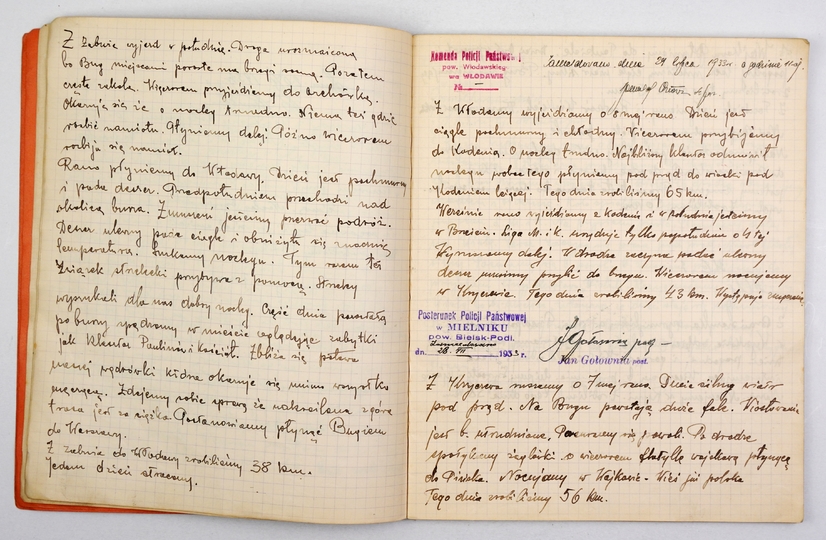 Z Zabuża wyjazd w południe. Droga urozmaicona
bo Bug miejscami porośnięte ma brzegi
częste zakola. Wieczorem przyjeżdżamy do
Okazuje się że o nocleg trudno. Niema też gdzie
rozbić namiotu. Płyniemy dalej. Późno wieczorem
rozbija się namiot.
Rano płyniemy do Włodawy. Dzień jest pochmurny
i pada deszcz. Przedpołudniem przechodzi nad
okolicą burza. Zmuszeni jesteśmy przerwać podróż.
Deszcz ulewny pada ciągle i obniżyła się znacznie
temperatura. Szukamy noclegu. Tym razem też
Związek strzelecki przybywa z pomocą. Strzelcy
wyszukali dla nas dobry nocleg. Część dnia pozostałą
po burzy spędzamy w mieście oglądając zabytki
jak klasztor Paulinów i Kościół. Zbliża się połowa
naszej wędrówki która okazuje się mimo wszystko
męcząca. Zdajemy sobie sprawę że nakreślona z góry
trasa jest za ciężka. Postanawiamy płynąć Bugiem
do Warszawy.
Z Zabuża do Włodawy zrobiliśmy 38 km.
Jeden dzień stracony.
Komenda Policji Państwowej
pow. Włodawskiego
we WŁODAWIE
№
Zameldowano dnia 24 lipca 1933 r. o godzinie
Z Włodawy wyjeżdżamy o 8 mej rano. Dzień jest
ciągle pochmurny i chłodny. Wieczorem przybijamy
do Kodenia. O nocleg trudno. Najbliższy klasztor odmówił
noclegu wobec tego płyniemy pod prąd do wioski pod
Kodeniem leżącej. Tego dnia zrobiliśmy 65 km.
Wcześnie rano wyjeżdżamy z Kodenia i w południe jesteśmy
w Brześciu. Liga M. i K. urzęduje tylko popołudniu o 4 tej
Wyruszamy dalej. W drodze zaczyna padać ulewny
deszcz musimy przybić do brzegu. Wieczorem nocujemy
w Krzyczewie. Tego dnia zrobiliśmy 43 km.
Posterunek Policji Państwowej
w MIELNIKU
pow. Bielsk-Podl.
dn. 28. VII 1933 r.
Jan Gołownia post.
Z Krzyczewa ruszamy o 7 mej rano. Dmie silny wiatr
pod prąd. Na Bugu powstają duże fale. Wiosłowanie
jest b. utrudnione, posuwamy się powoli. Po drodze
spotykamy żaglówki a wieczorem flotyllę wojskową płynącą
do Pińska. Nocujemy w Wajkowie - Wieś już polska
Tego dnia zrobiliśmy 56 km.